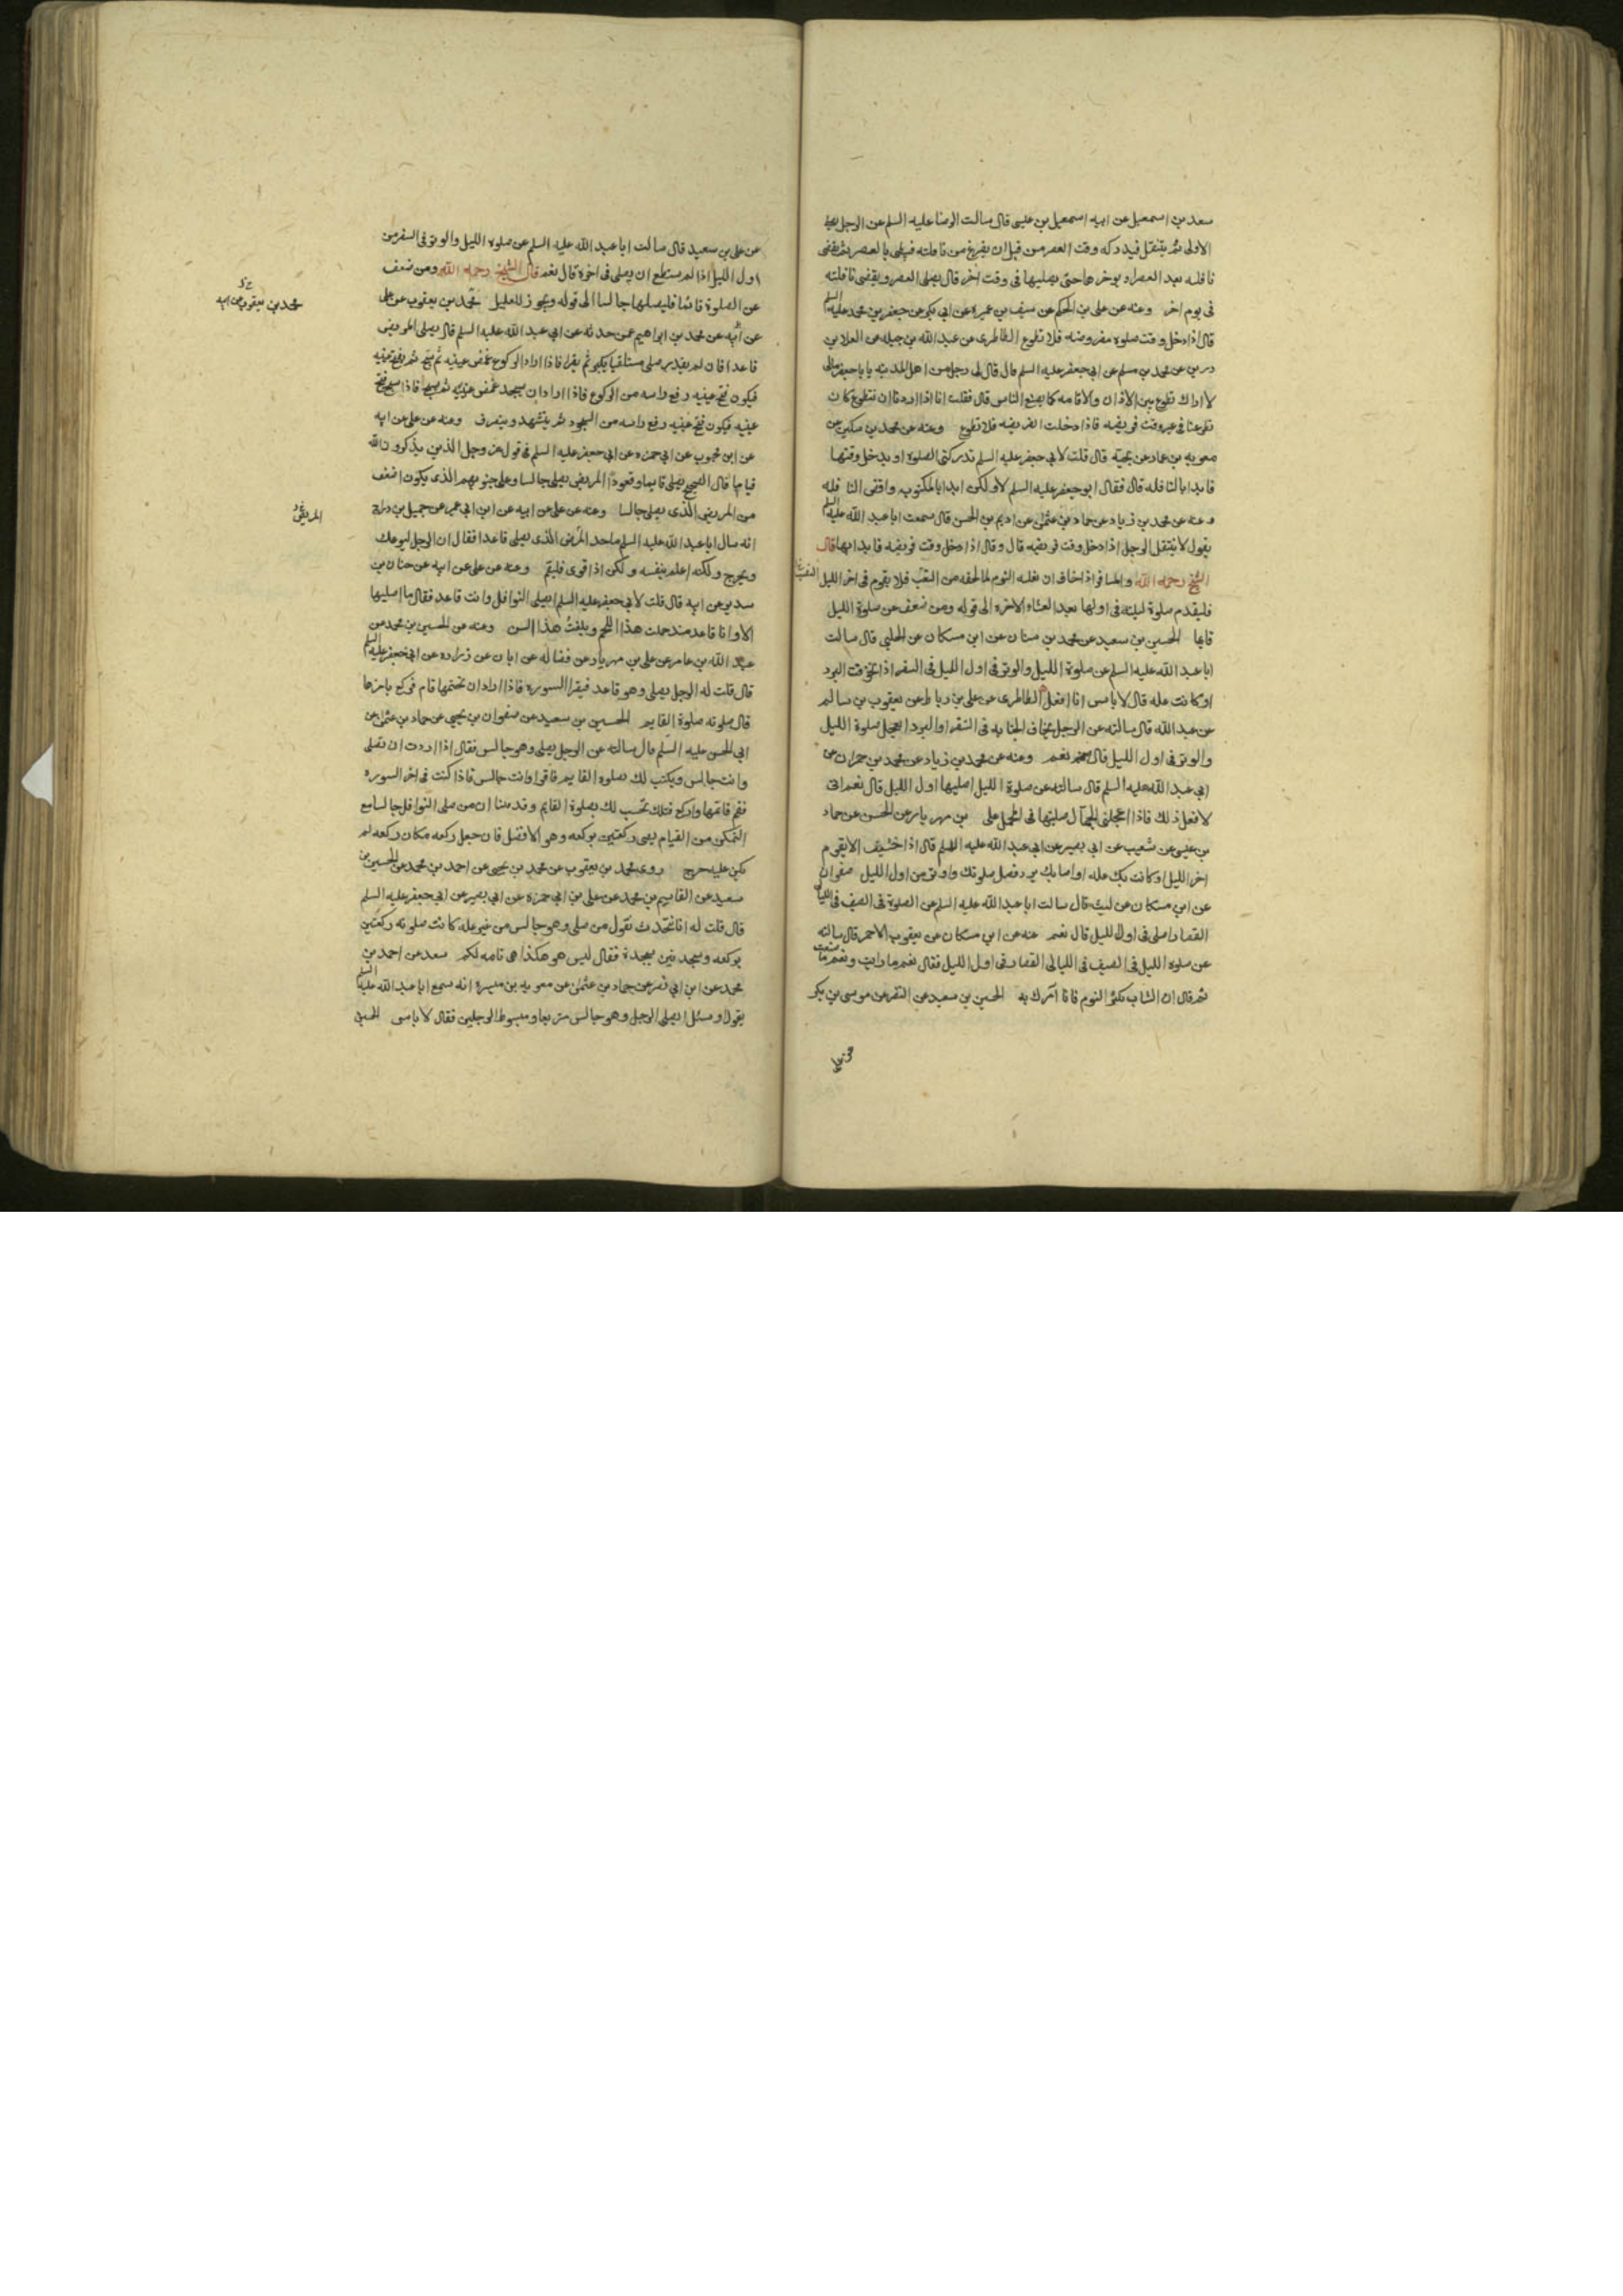 سعد بن اسمعيل عن ابيه اسمعيل بن عيسى قال سالت الرضا عليه السلم عن الرجل يصلى
الاولى ثم يتنفل فيدركه وقت العصر من قبل ان يفرغ من نافلته فيبطى بالعصر ثم يقضى
نافلته بعد العصر او يوخرها حتى يصليها فى وقت اخر قال يصلى العصر ويقضى نافلته
فى يوم اخر وعنه عن على بن الحكم عن سيف بن عميره عن ابى بكر عن جعفر بن محمد عليه السلم
قال اذا دخل وقت صلوة مفروضه فلا تطوع الطاطرى عن عبد الله بن جبله عن العلا بن
رزين عن محمد بن مسلم عن ابى جعفر عليه السلم قال قال لى رجل من اهل المدينه يابا جعفر مالى
لا اراك تطوع بين الاذان والاقامه كما يصنع الناس قال فقلت انا اذا اردنا ان نتطوع كان
تطوعنا فى غير وقت فريضه فاذا دخلت الفريضه فلا تطوع وعنه عن محمد بن مسكين عن
معويه بن عمار عن نجيه قال قلت لابى جعفر عليه السلم تدركنى الصلوة او يدخل وقتها
فابدا بالنافله قال فقال ابو جعفر عليه السلم لا ولكن ابدا بالمكتوبه واقض النافله
وعنه عن محمد بن زياد عن حماد بن عثمن عن اديم بن الحسن قال سمعت ابا عبد الله عليه السلم
يقول لا يتنفل الرجل اذا دخل وقت فريضه قال وقال اذا دخل وقت فريضه فابدا بها قال
الشيخ رحمه الله والمسافر اذا خاف ان يغلبه النوم لما لحقه من التعب فلا يقوم فى اخر الليل
فليقدم صلوة ليلته فى اولها بعد العشاء الاخره الى قوله ومن ضعف عن صلوة الليل
قايما الحسين بن سعيد عن محمد بن سنان عن ابن مسكان عن الحلبى قال سالت
ابا عبد الله عليه السلم عن صلوة الليل والوتر فى اول الليل فى السفر اذا تخوفت البرد
او كانت عله قال لا باس انا افعل الطاطرى عن على بن رباط عن يعقوب بن سالم
عن عبد الله قال سالته عن الرجل يخاف الجنابه فى السفر او البرد ايعجل صلوة الليل
والوتر فى اول الليل قال نعم وعنه عن محمد بن زياد عن محمد بن حمران عن
ابى عبد الله عليه السلم قال سالته عن صلوة الليل اصليها اول الليل قال نعم انى
لافعل ذلك فاذا اعجلنى الجمال صليتها فى المحمل على بن مهريار عن الحسن عن حماد
بن عيسى عن شعيب عن ابى بصير عن ابى عبد الله عليه السلم قال اذا خشيت الا يقوم
اخر الليل او كانت بك عله او اصابك برد فصل صلوتك واوتر من اول الليل صفوان
عن ابن مسكان عن ليث قال سالت ابا عبد الله عليه السلم عن الصلوة فى الصيف فى الليالى
القصار اصلى فى اول الليل قال نعم عنه عن ابن مسكان عن يعقوب الاحمر قال سالته
عن صلوة الليل فى الصيف فى الليالى القصار فى اول الليل فقال نعم ما رايت ونعم ما صنعت
ثم قال ان الشاب يكثر النوم فانا امرك به الحسين بن سعيد عن النضر عن موسى بن بكر
عن على
عن على بن سعيد قال سالت ابا عبد الله عليه السلم عن صلوة الليل والوتر فى السفر من
اول الليل اذا لم يستطع ان يصلى فى اخره قال نعم قال الشيخ رحمه الله ومن ضعف
عن الصلوة قائما فليصلها جالسا الى قوله ويجوز للعليل محمد بن يعقوب عن على
عن ابيه عن محمد بن ابراهيم عمن حدثه عن ابى عبد الله عليه السلم قال يصلى المريض
قاعدا فان لم يقدر صلى مستلقيا يكبر ثم يقرا فاذا اراد الركوع غمض عينيه ثم سبح ثم يفتح عينيه
فيكون فتح عينيه رفع راسه من الركوع فاذا اراد ان يسجد غمض عينيه ثم يسبح فاذا سبح فتح
عينيه فيكون فتح عينيه رفع راسه من السجود ثم يتشهد وينصرف وعنه عن على عن ابيه
عن ابن محبوب عن ابى حمزه عن ابى جعفر عليه السلم فى قول عز وجل الذين يذكرون الله
قياما قال الصحيح يصلى قايما وقعودا المريض يصلى جالسا وعلى جنوبهم الذى يكون اضعف
من المريض الذى يصلى جالسا وعنه عن على عن ابيه عن ابن ابى عمير عن جميل بن دراج
انه سال ابا عبد الله عليه السلم ما حد المرض الذى يصلى قاعدا فقال ان الرجل ليوعك
ويحرج ولكنه اعلم بنفسه ولكن اذا قوى فليقم وعنه عن على عن ابيه عن حنان بن
سدير عن ابيه قال قلت لابى جعفر عليه السلم ايصلى النوافل وانت قاعد فقال ما اصليها
الا وانا قاعد منذ حملت هذا اللحم وبلغت هذا السن وعنه عن الحسين بن محمد عن
عبد الله بن عامر عن على بن مهريار عن فضاله عن ابان عن زراره عن ابى جعفر عليه السلم
قال قلت له الرجل يصلى وهو قاعد فيقرا السوره فاذا اراد ان يختمها قام فركع باخرها
قال صلوته صلوة القايم الحسين بن سعيد عن صفوان بن يحيى عن حماد بن عثمن عن
ابى الحسن عليه السلم قال سالته عن الرجل يصلى وهو جالس فقال اذا اردت ان تصلى
وانت جالس ويكتب لك بصلوة القايم فاقرا وانت جالس فاذا كنت فى اخر السوره
فقم فاتمها واركع فتلك تحسب لك بصلوة القايم وقد بينا ان من صلى النوافل جالسا مع
التمكن من القيام يصلى ركعتين بركعه وهو الافضل فان جعل ركعه مكان ركعه لم
يكن عليه حرج روى محمد بن يعقوب عن محمد بن يحيى عن احمد بن محمد عن الحسين بن
سعيد عن القاسم بن محمد عن على بن ابى حمزه عن ابى بصير عن ابى جعفر عليه السلم
قال قلت له انا نتحدث نقول من صلى وهو جالس من غير عله كانت صلوته ركعتين
بركعه وسجدتين بسجدة فقال ليس هو هكذا هى تامه لكم سعد عن احمد بن
محمد عن ابن ابى نصر عن حماد بن عثمن عن معويه بن ميسره انه سمع ابا عبد الله عليه السلم
يقول او سئل ايصلى الرجل وهو جالس متربعا ومبسوط الرجلين فقال لا باس الحسين
محمد بن يعقوب عن ابيه
المريض